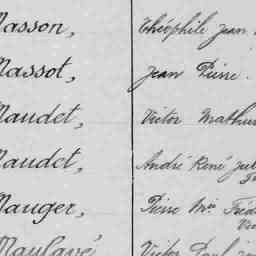 Masson, Théophile Jean
Massot, Jean Pierre
Maudet, Victor Mathur
Maudet, André René Jul
Mauger, Pierre Mie Fréd
Maulavé Victor Paul